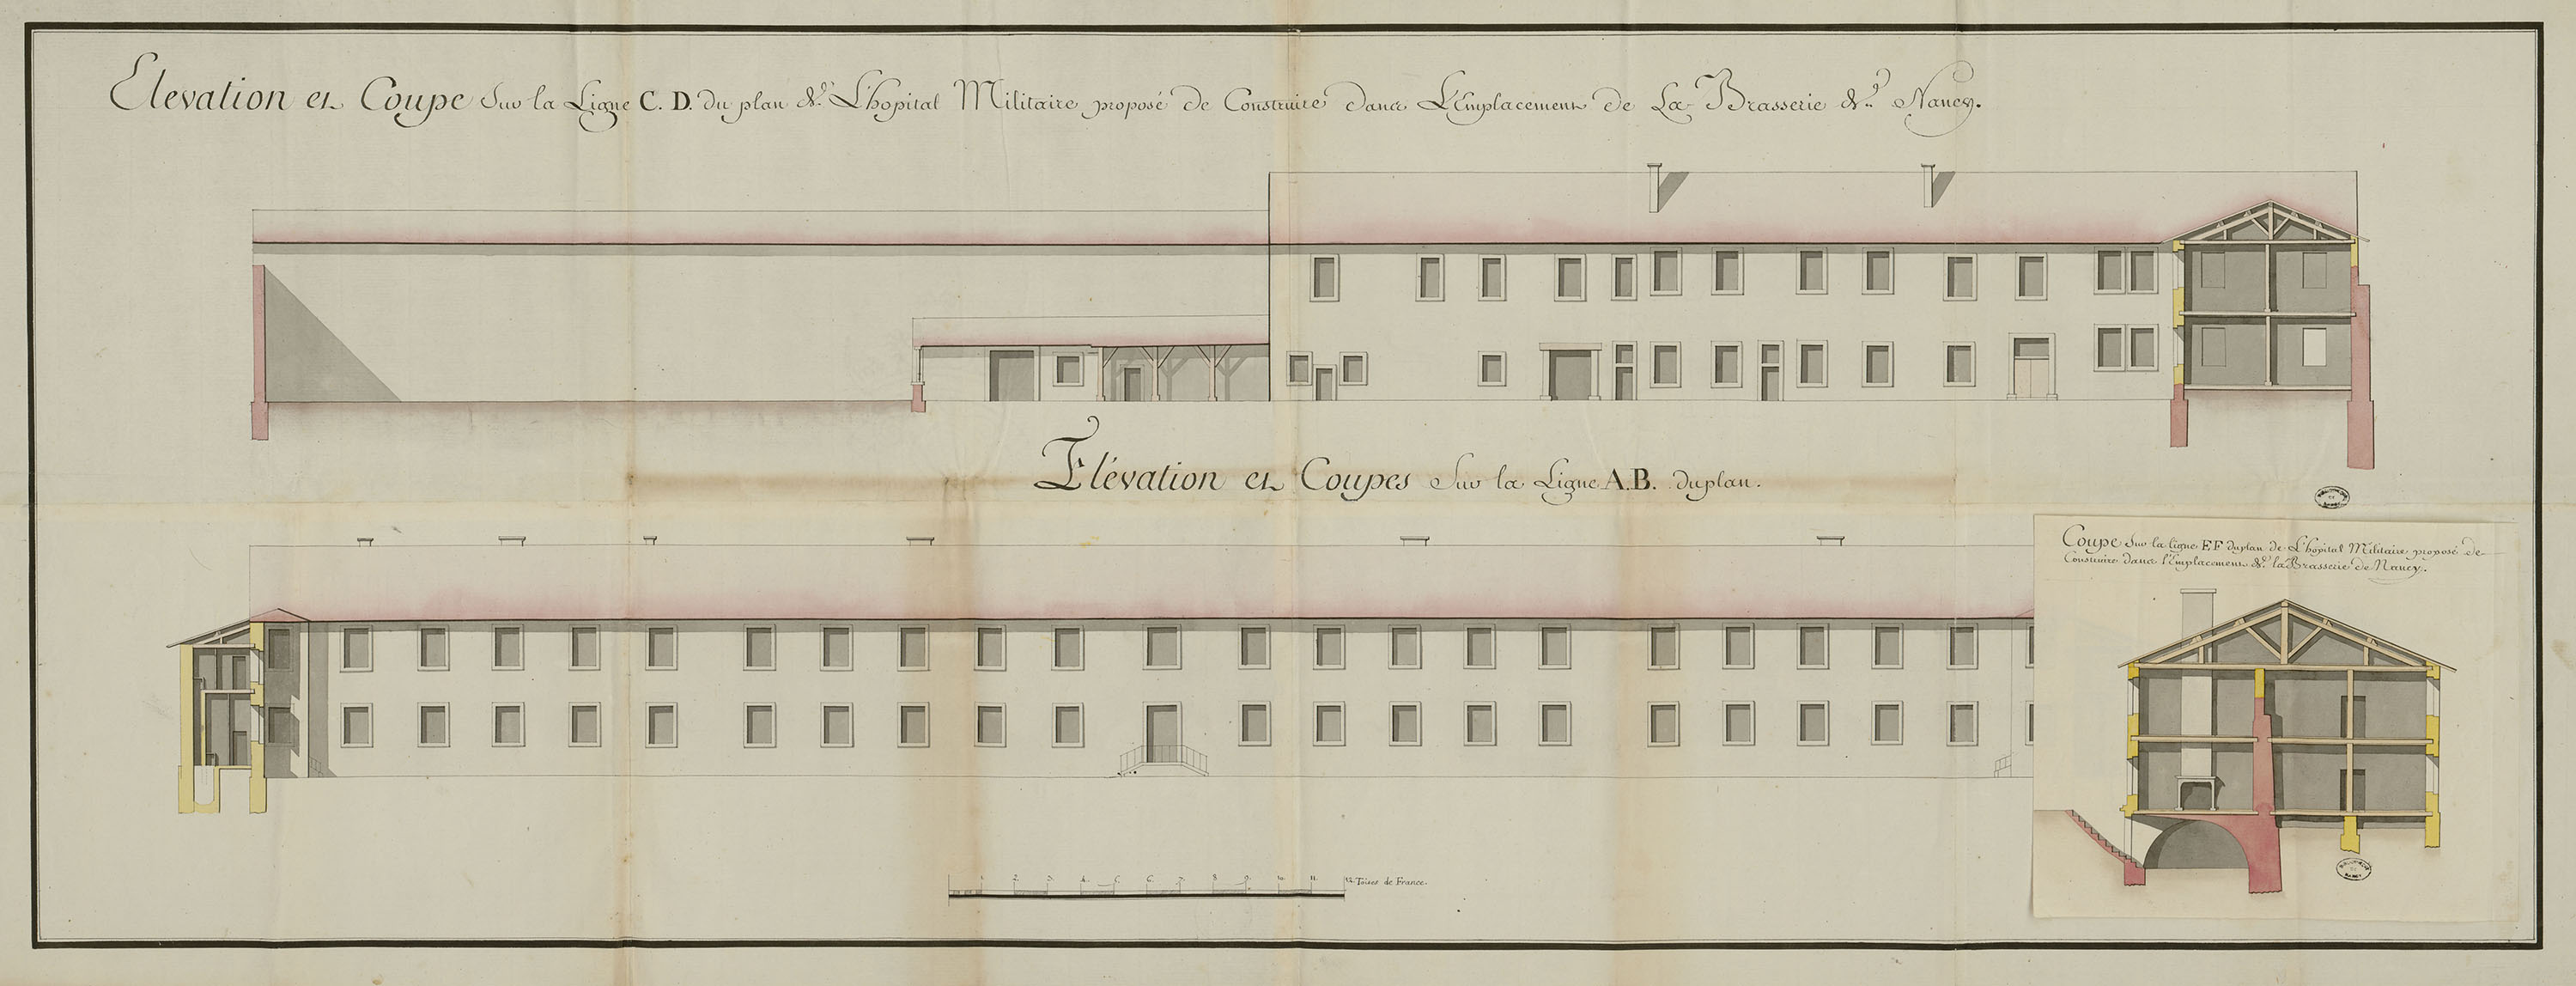 Elevation et Coupe Sur la Ligne C. D. du plan de L'hopital Militaire proposé de Construire dans L'Emplacement de La Brasserie de Nancy.
Elévation et Coupes Sur la Ligne A.B. du plan.
Coupe Sur la ligne EF du plan de L'hôpital Militaire proposé de
Construire dans l'Emplacement de la Brasserie de Nancy.
1. 2. 3. 4. 5. 6. 7. 8. 9. 10. 11. 12. Toises de France.